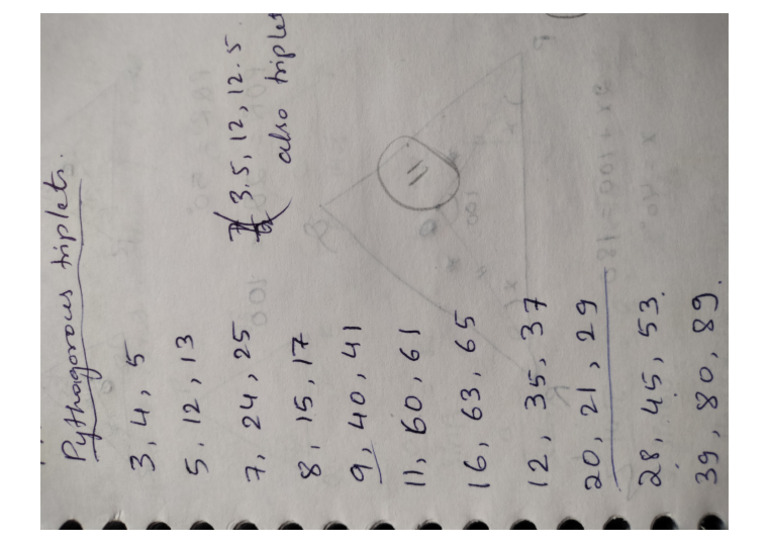 Pythagorous triplets.
3, 4, 5
5, 12, 13
7, 24, 25
3.5, 12, 12.5
also triplets
8, 15, 17
9, 40, 41
11, 60, 61
11
16, 63, 65
12, 35, 37
20, 21, 29
28, 45, 53.
39, 80, 89.